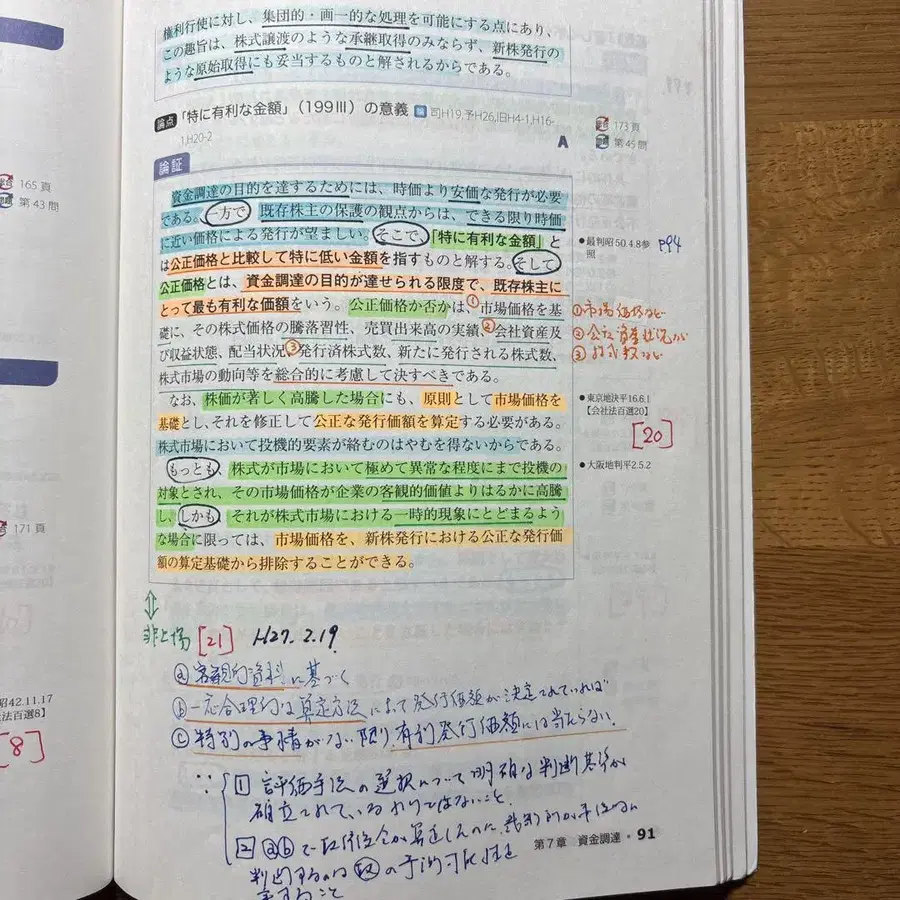 権利行使に対し、集団的・画一的な処理を可能にする点にあり、
この趣旨は、株式譲渡のような承継取得のみならず、新株発行の
ような原始取得にも妥当するものと解されるからである。
論点 「特に有利な金額」(199Ⅲ)の意義 司H19,予H26,旧H4-1,H16-
1,H20-2
A
173頁
第45問
論証
165頁
第43問
資金調達の目的を達するためには、時価より安価な発行が必要
である。一方で、既存株主の保護の観点からは、できる限り時価
に近い価格による発行が望ましい。そこで、「特に有利な金額」と
は公正価格と比較して特に低い金額を指すものと解する。そして
公正価格とは、資金調達の目的が達せられる限度で、既存株主に
とって最も有利な価額をいう。公正価格か否かは、①市場価格を基
礎に、その株式価格の騰落習性、売買出来高の実績、②会社資産及
び収益状態、配当状況、③発行済株式数、新たに発行される株式数、
株式市場の動向等を総合的に考慮して決すべきである。
なお、株価が著しく高騰した場合にも、原則として市場価格を
基礎とし、それを修正して公正な発行価額を算定する必要がある。
株式市場において投機的要素が絡むのはやむを得ないからである。
もっとも、株式が市場において極めて異常な程度にまで投機の
対象とされ、その市場価格が企業の客観的価値よりはるかに高騰
し、しかも、それが株式市場における一時的現象にとどまるよう
な場合に限っては、市場価格を、新株発行における公正な発行価
額の算定基礎から排除することができる。
●最判昭50.4.8参
照
P94
①市場価格など
②会社資産状況など
③株式数など
●東京地決平16.6.1
【会社法百選20】
[20]
●大阪地判平2.5.2
171頁
昭42.11.17
会社法百選8】
[8]
非上場 [21] H27.2.19
ⓐ客観的資料に基づく
ⓑ一応合理的な算定方法によって発行価額が決定されていれば
ⓒ特別の事情がない限り、有利発行価額には当たらない.
∵ 1 評価手法の選択について明確な判断基準が
確立されているわけではないこと.
2 ⓐⓑで取締役会が算定したのに、裁判所が事後的に
判断するのは取の予測可能性を
害すること
第7章 資金調達 ● 91